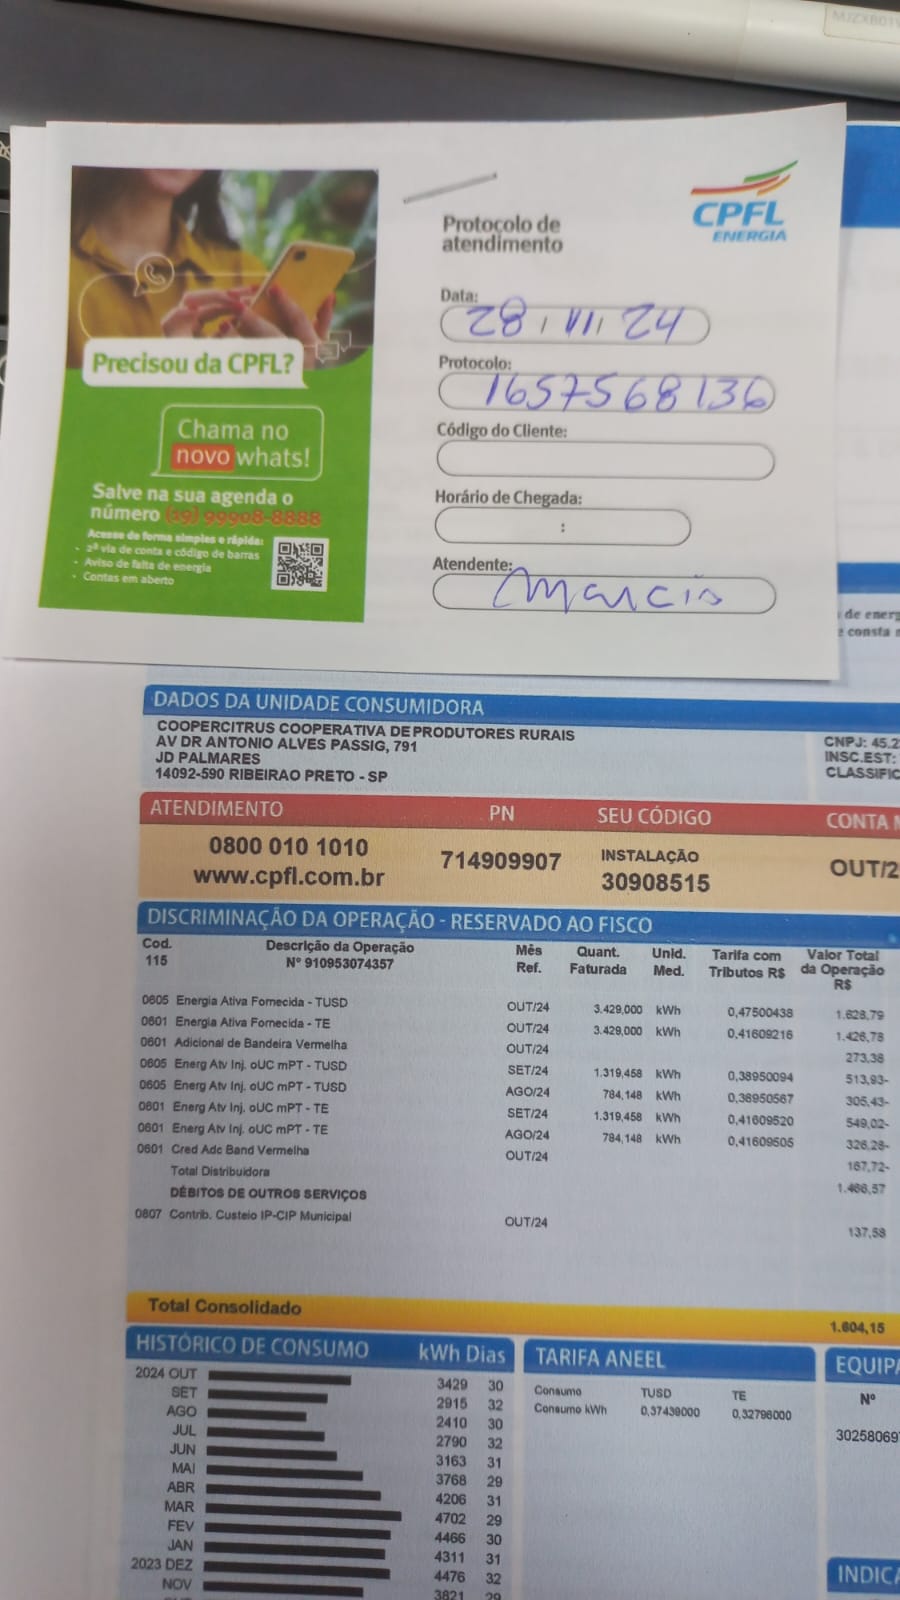 MJZXB01
Protocolo de
atendimento
CPFL
ENERGIA
Data:
28 / 11 / 24
Precisou da CPFL?
Protocolo:
1657568136
Chama no
novo whats!
Código do Cliente:
Salve na sua agenda o
número (19) 99908-8888
Horário de Chegada:
:
Acesse de forma simples e rápida:
- 2ª via de conta e código de barras
- Aviso de falta de energia
- Contas em aberto
Atendente:
Marcia
de energ
consta
DADOS DA UNIDADE CONSUMIDORA
COOPERCITRUS COOPERATIVA DE PRODUTORES RURAIS
AV DR ANTONIO ALVES PASSIG, 791
JD PALMARES
14092-590 RIBEIRAO PRETO - SP
CNPJ: 45.2
INSC.EST:
CLASSIFIC
ATENDIMENTO PN SEU CÓDIGO CONTA
0800 010 1010
www.cpfl.com.br
714909907
INSTALAÇÃO
30908515
OUT/2
DISCRIMINAÇÃO DA OPERAÇÃO - RESERVADO AO FISCO
Cod. Descrição da Operação Mês Quant. Unid. Tarifa com Valor Total
115 Nº 910953074357 Ref. Faturada Med. Tributos R$ da Operação
R$
0605 Energia Ativa Fornecida - TUSD OUT/24 3.429,000 kWh 0,47500438 1.628,79
0601 Energia Ativa Fornecida - TE OUT/24 3.429,000 kWh 0,41609216 1.426,78
0601 Adicional de Bandeira Vermelha OUT/24 273,38
0605 Energ Atv Inj. oUC mPT - TUSD SET/24 1.319,458 kWh 0,38950094 513,93-
0605 Energ Atv Inj. oUC mPT - TUSD AGO/24 784,148 kWh 0,38950567 305,43-
0601 Energ Atv Inj. oUC mPT - TE SET/24 1.319,458 kWh 0,41609520 549,02-
0601 Energ Atv Inj. oUC mPT - TE AGO/24 784,148 kWh 0,41609505 326,28-
0601 Cred Adc Band Vermelha OUT/24 167,72-
Total Distribuidora 1.466,57
DÉBITOS DE OUTROS SERVIÇOS
0807 Contrib. Custeio IP-CIP Municipal OUT/24 137,58
Total Consolidado 1.604,15
HISTÓRICO DE CONSUMO kWh Dias
2024 OUT 3429 30
SET 2915 32
AGO 2410 30
JUL 2790 32
JUN 3163 31
MAI 3768 29
ABR 4206 31
MAR 4702 29
FEV 4466 30
JAN 4311 31
2023 DEZ 4476 32
NOV 3821 29
TARIFA ANEEL
Consumo TUSD TE
Consumo kWh 0,37439000 0,32796000
EQUIPA
Nº
30258069
INDICA